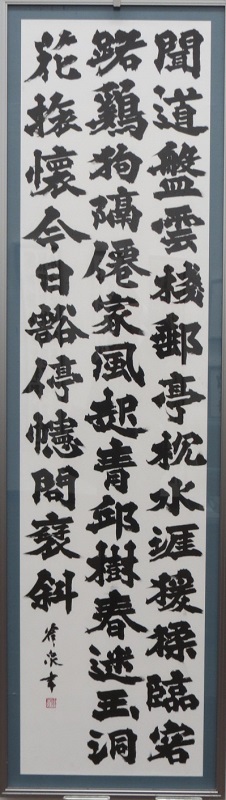 聞道盤雲棧郵亭枕水涯猨猱臨
路鷄狗隔僊家風起青邱樹春迷玉洞
花旅懷今日豁停幰問褒斜
泉書